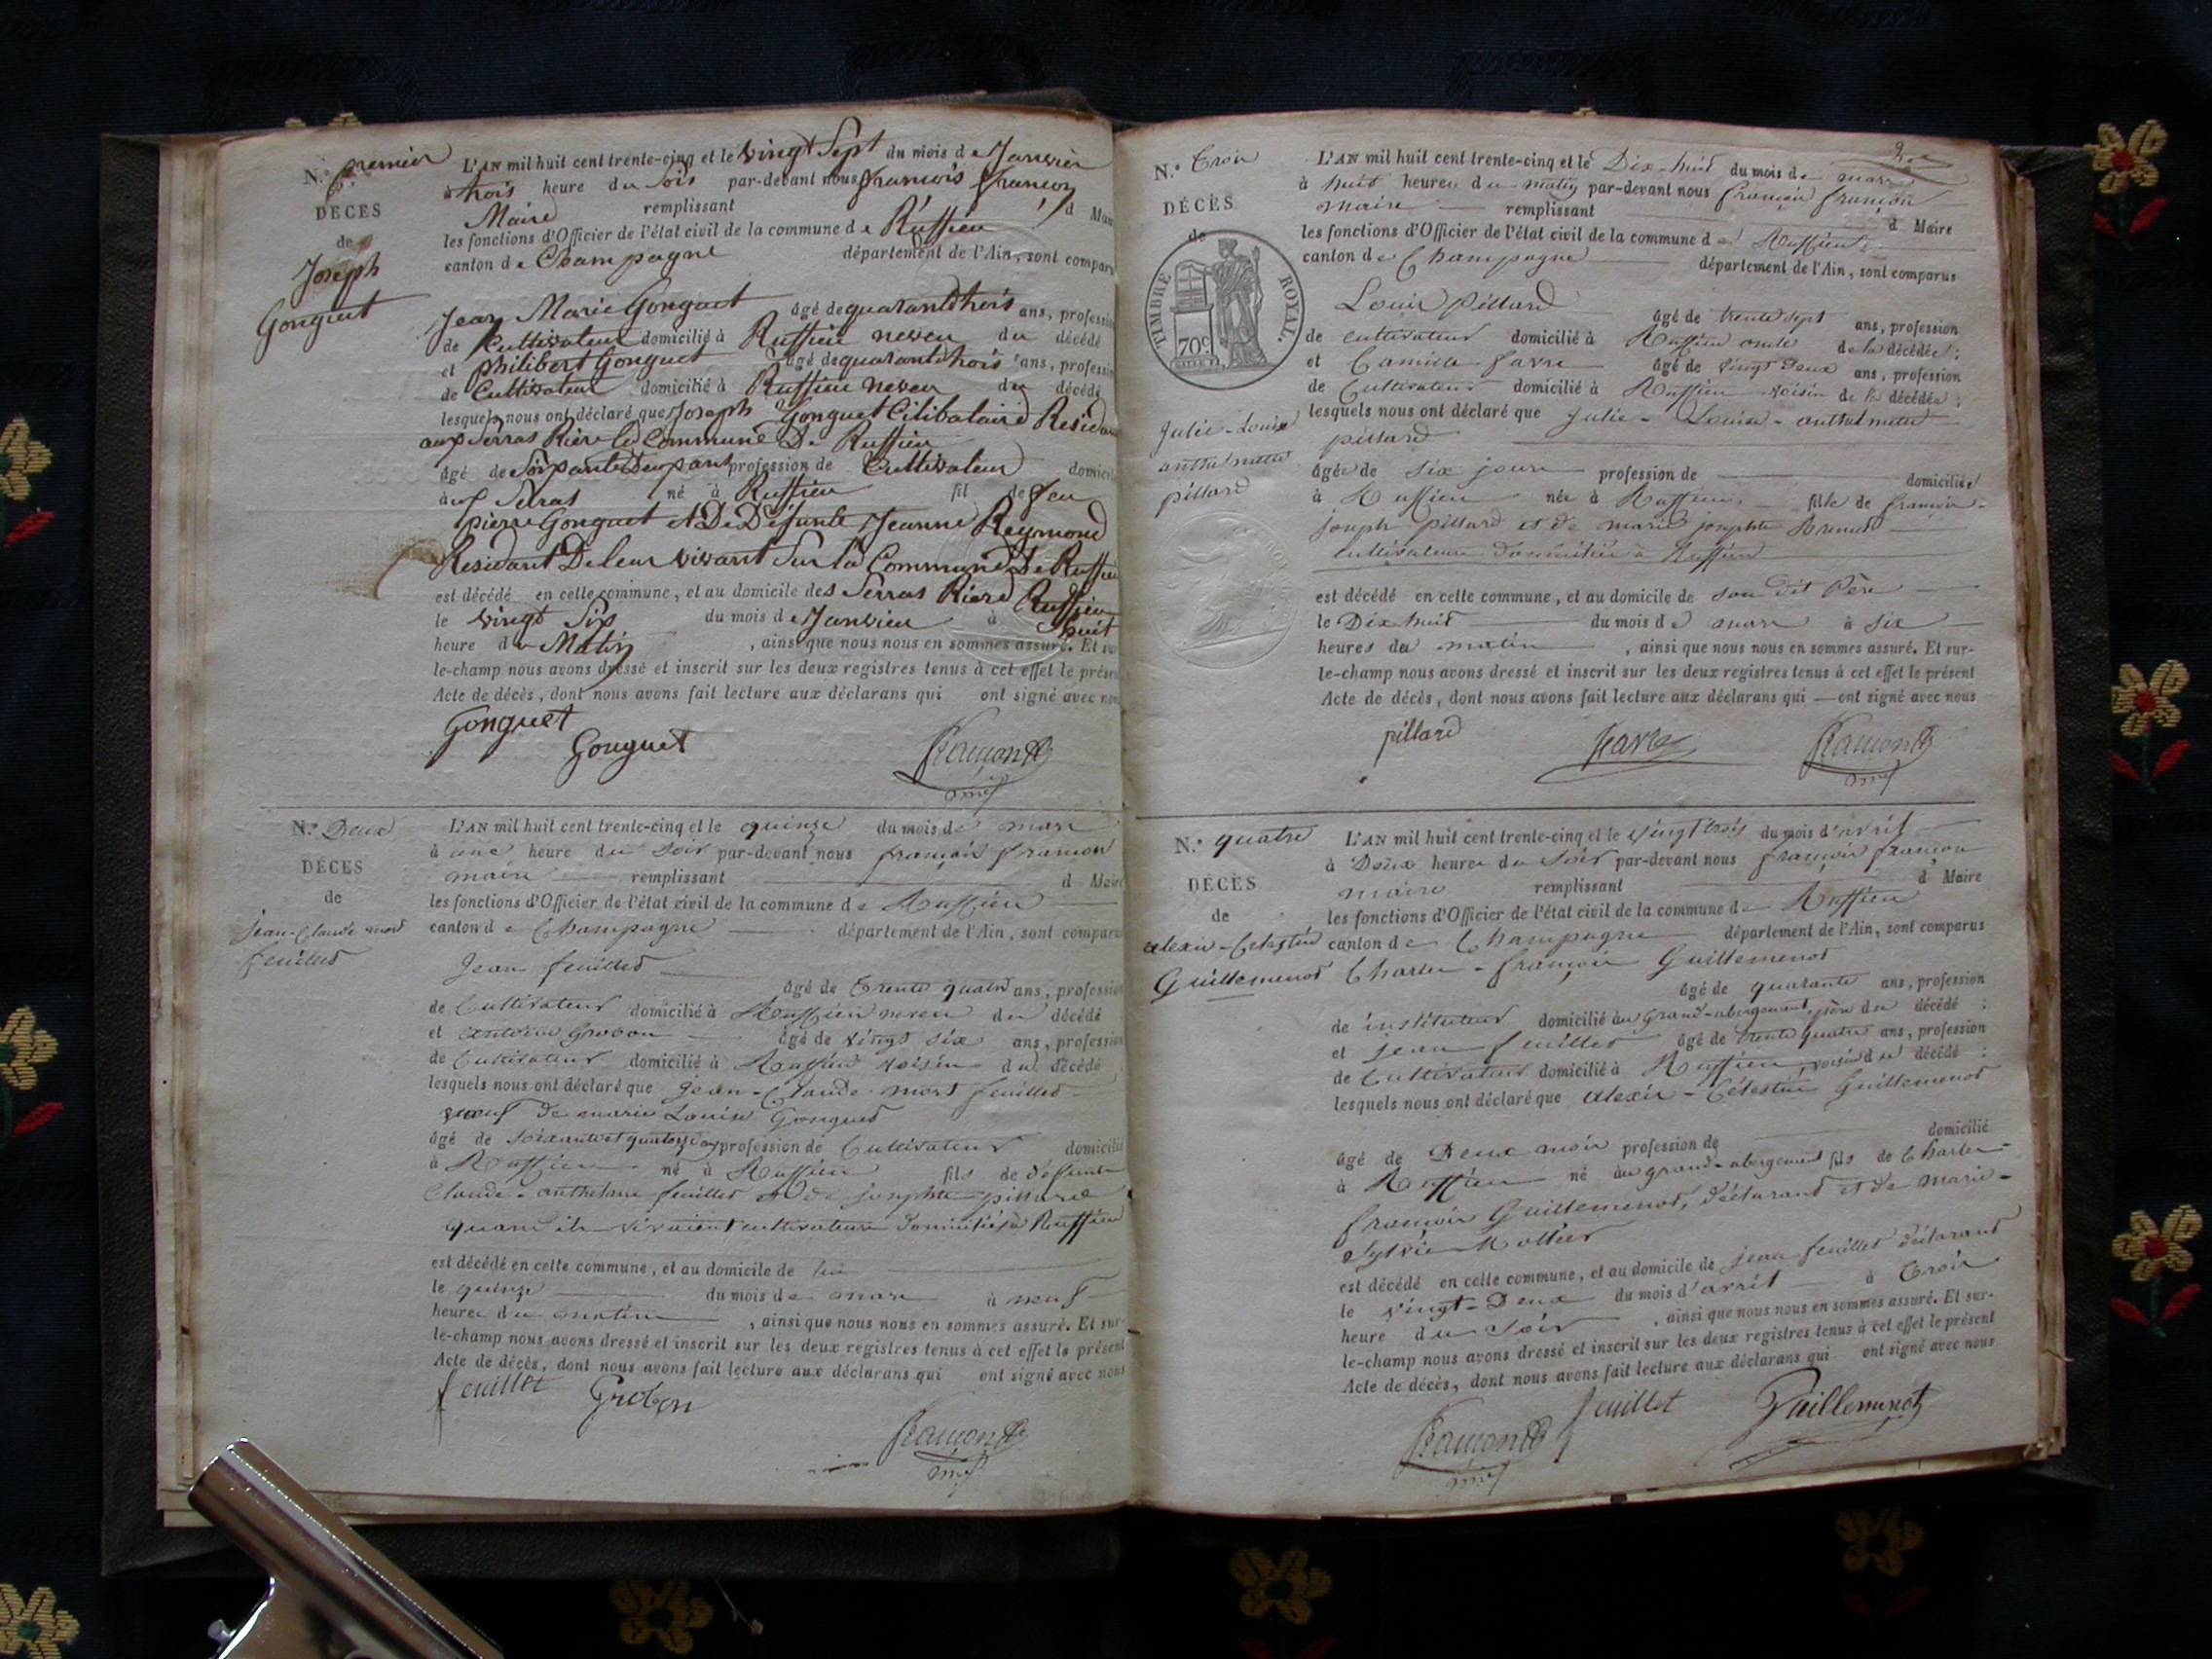 N.º premier
DÉCÈS
de
Joseph
Gonguet
L'AN mil huit cent trente-cinq et le vingt Sept du mois de Janvier
à trois heure du Soir par-devant nous françois françon
Maire remplissant d Maire
les fonctions d'Officier de l'état civil de la commune de Ruffieu
canton de Champagne département de l'Ain, sont comparus
Jean Marie Gonguet âgé de quarante trois ans, profession
de Cultivateur domicilié à Ruffieu neveu du décédé
et philibert Gonguet âgé de quarante trois ans, profession
de Cultivateur domicilié à Ruffieu neveu du décédé
lesquels nous ont déclaré que Joseph Gonguet Cilibataire Residant
aux Serras Riere la Commune De Ruffieu
âgé de Soixante Deux ans profession de Cultivateur domicilié
aux Serras né à Ruffieu fil de feu
pierre Gonguet et De Défunte Jeanne Reymond
Residant De leur vivant Sur la Commune De Ruffieu
est décédé en cette commune, et au domicile des Serras Riere Ruffieu
le vingt Six du mois de Janvier à huit
heure du Matin, ainsi que nous nous en sommes assuré. Et sur-
le-champ nous avons dressé et inscrit sur les deux registres tenus à cet effet le présent
Acte de décès, dont nous avons fait lecture aux déclarans qui ont signé avec nous
Gonguet
Gonguet
N.º Deux
DÉCÈS
de
jean-Claude mort
feuillet
L'AN mil huit cent trente-cinq et le quinze du mois de mars
à une heure du Soir par-devant nous françois françon
maire remplissant d Maire
les fonctions d'Officier de l'état civil de la commune de Ruffieu
canton de Champagne département de l'Ain, sont comparus
Jean feuillet
âgé de trente quatre ans, profession
de Cultivateur domicilié à Ruffieu neveu du décédé
et antoine Grobon âgé de vingt six ans, profession
de Cultivateur domicilié à Ruffieu voisin du décédé
lesquels nous ont déclaré que jean-Claude-mort feuillet
veuf de marie Louise Gonguet
âgé de soixante et quatorze ans profession de Cultivateur domicilié
à Ruffieu né à Ruffieu fils de défunt
Claude-anthelme feuillet et de josephte pillard
quand ils vivaient cultivateurs domiciliés à Ruffieu
est décédé en cette commune, et au domicile de lui
le quinze du mois de mars à neuf
heures du matin, ainsi que nous nous en sommes assuré. Et sur-
le-champ nous avons dressé et inscrit sur les deux registres tenus à cet effet le présent
Acte de décès, dont nous avons fait lecture aux déclarans qui ont signé avec nous
feuillet Grobon
N.º trois
DÉCÈS
de
TIMBRE ROYAL.
70c
Julie-Louise
anthelmette
pillard
L'AN mil huit cent trente-cinq et le Dix-huit du mois de mars
à huit heures du matin par-devant nous françois françon
maire remplissant d Maire
les fonctions d'Officier de l'état civil de la commune de Ruffieu
canton de Champagne département de l'Ain, sont comparus
Louis pillard
âgé de trente sept ans, profession
de cultivateur domicilié à Ruffieu oncle de la décédée;
et Camille favre âgé de vingt Deux ans, profession
de Cultivateur domicilié à Ruffieu voisin de la décédée;
lesquels nous ont déclaré que Julie-Louise-anthelmette
pillard
âgée de six jours profession de domiciliée
à Ruffieu née à Ruffieu fille de françois-
joseph pillard et de marie josephte
cultivateurs domiciliés à Ruffieu
est décédé en cette commune, et au domicile de son dit Père
le Dix huit du mois de mars à six
heures du matin, ainsi que nous nous en sommes assuré. Et sur-
le-champ nous avons dressé et inscrit sur les deux registres tenus à cet effet le présent
Acte de décès, dont nous avons fait lecture aux déclarans qui ont signé avec nous
pillard favre
N.º quatre
DÉCÈS
de
alexis-Célestin
Guillemenot
L'AN mil huit cent trente-cinq et le vingt trois du mois d'avril
à Deux heures du Soir par-devant nous françois françon
maire remplissant d Maire
les fonctions d'Officier de l'état civil de la commune de Ruffieu
canton de Champagne département de l'Ain, sont comparus
Charles-françois Guillemenot
âgé de quarante ans, profession
de instituteur domicilié au grand-abergement, père du décédé;
et jean feuillet âgé de trente quatre ans, profession
de Cultivateur domicilié à Ruffieu, voisin du décédé;
lesquels nous ont déclaré que alexis-Célestin Guillemenot
âgé de Deux mois profession de domicilié
à Ruffieu né au grand-abergement fils de Charles-
françois Guillemenot, déclarant et de marie-
Sylvie Mottier
est décédé en cette commune, et au domicile de jean feuillet déclarant
le vingt-Deux du mois d'avril à trois
heure du Soir, ainsi que nous nous en sommes assuré. Et sur-
le-champ nous avons dressé et inscrit sur les deux registres tenus à cet effet le présent
Acte de décès, dont nous avons fait lecture aux déclarans qui ont signé avec nous
feuillet Guilleminot